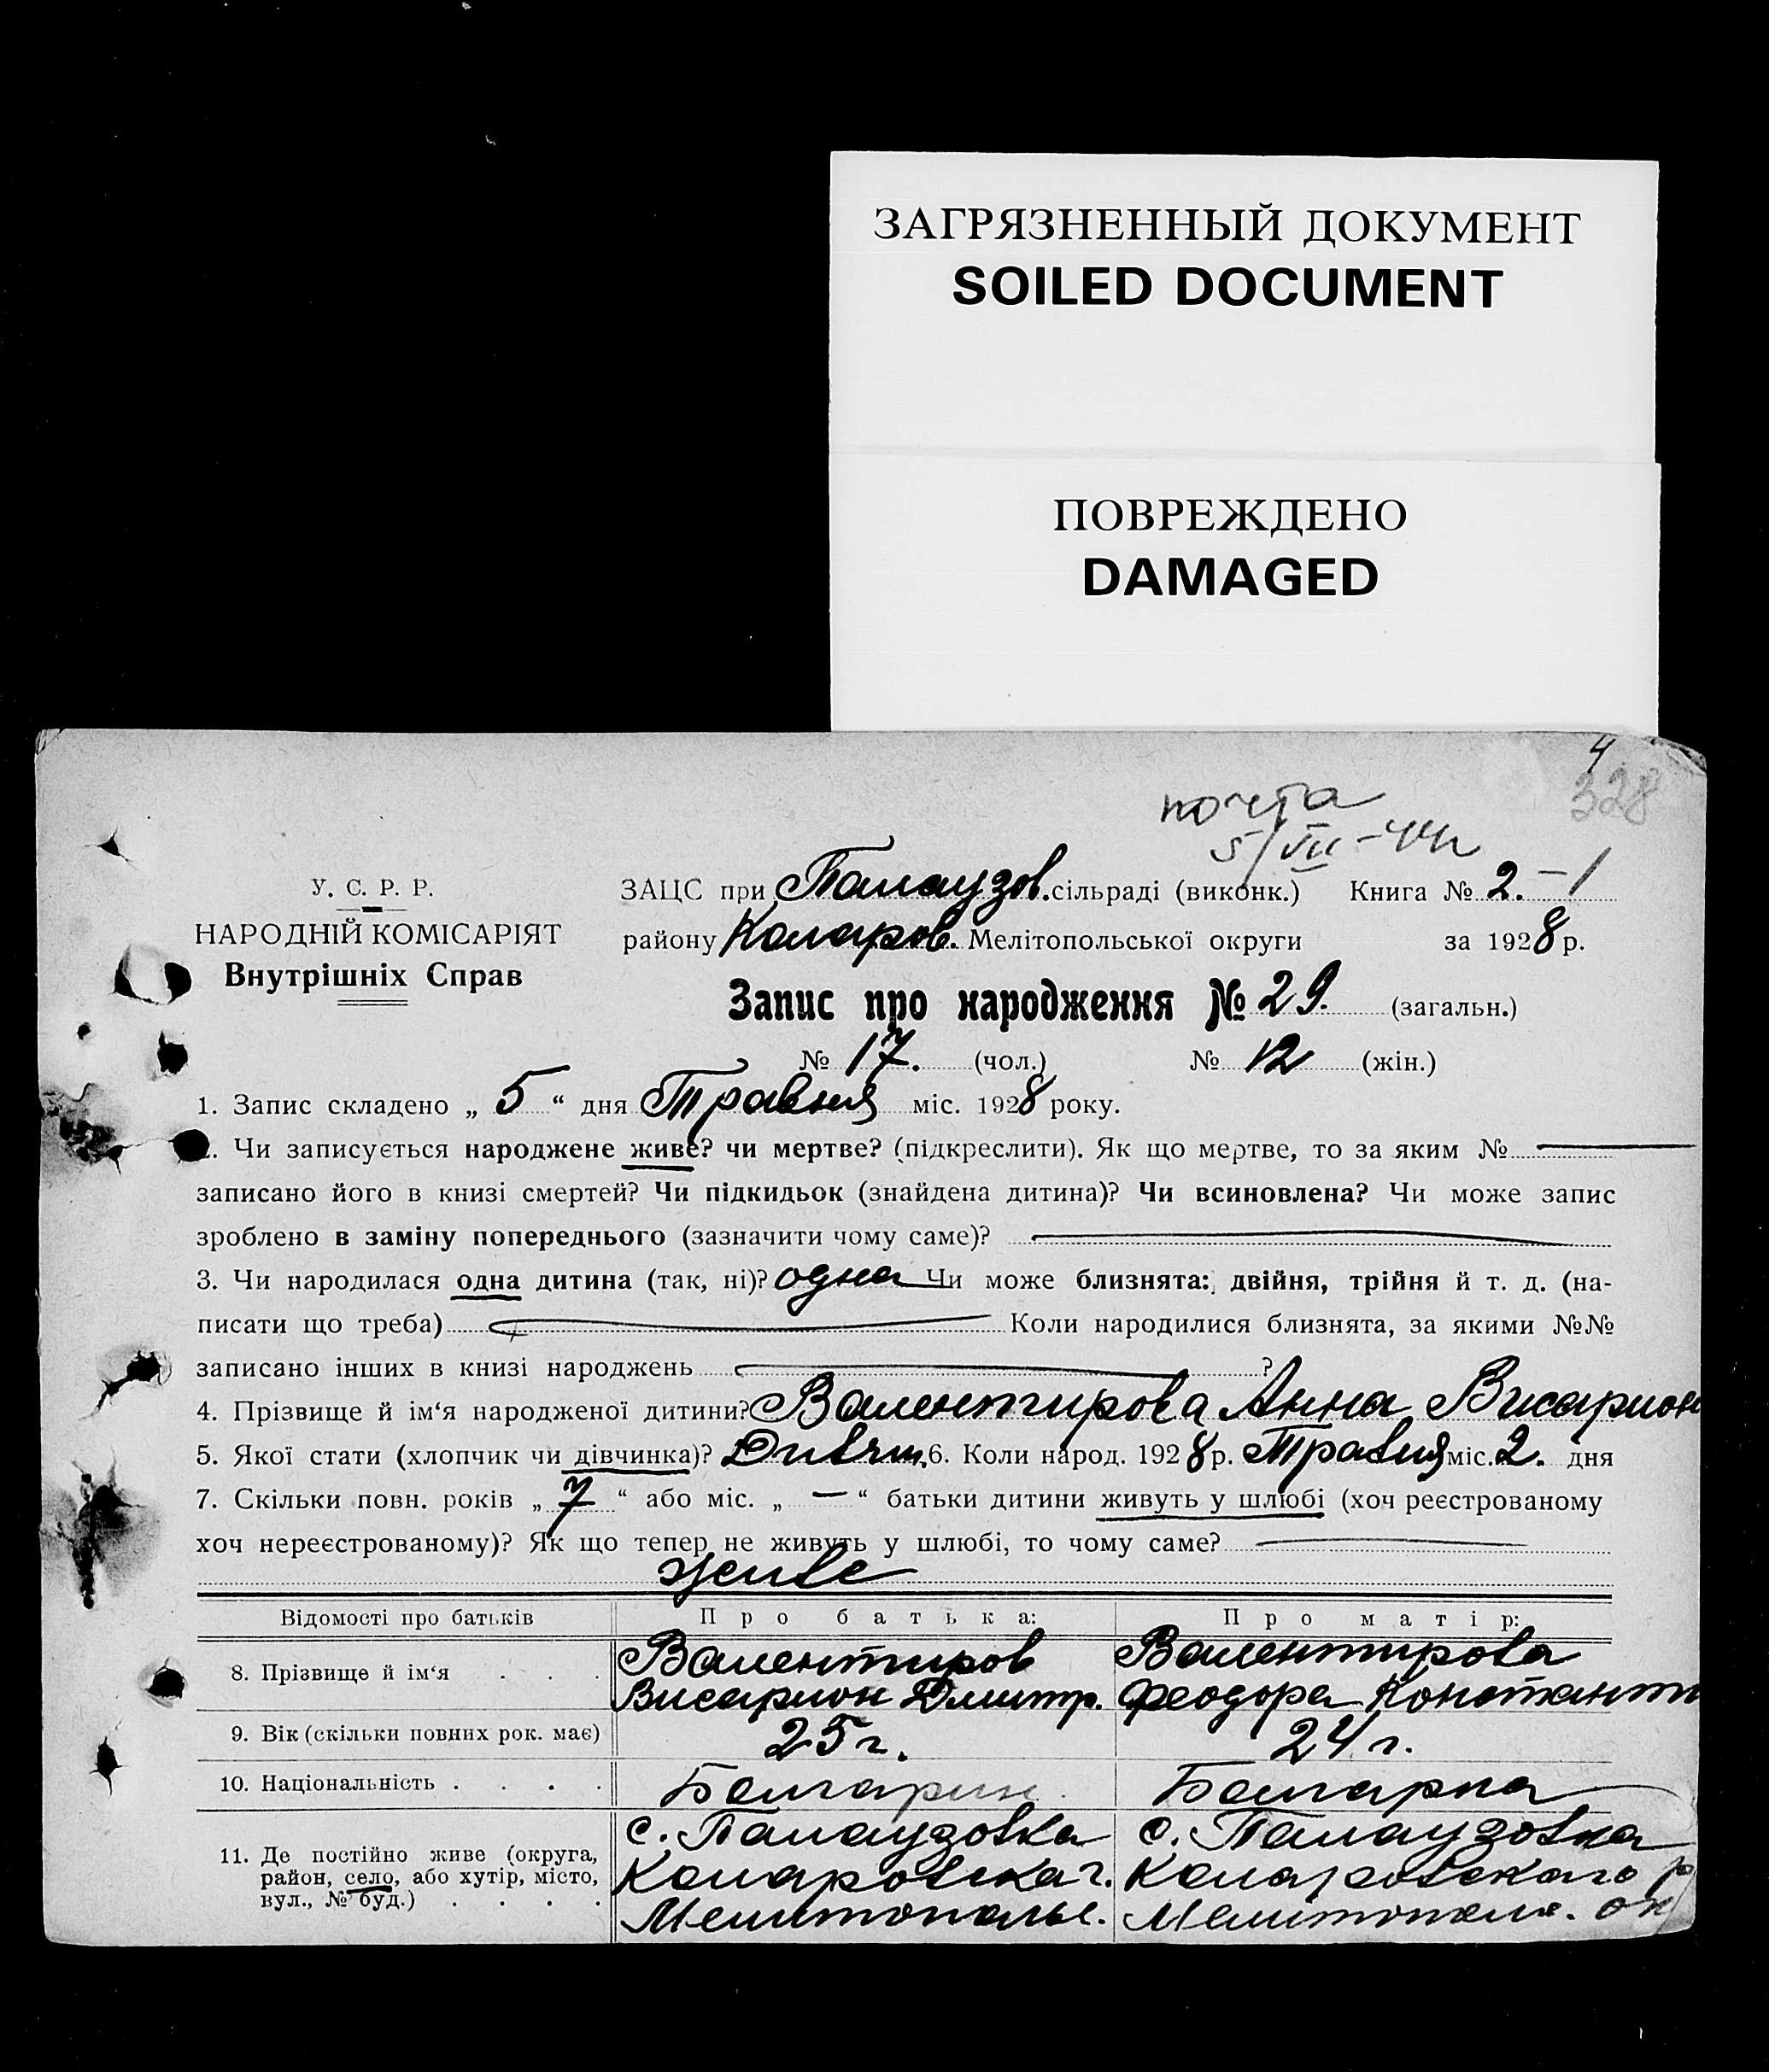 ЗАГРЯЗНЕННЫЙ ДОКУМЕНТ
SOILED DOCUMENT
ПОВРЕЖДЕНО
DAMAGED
4
328
почта
5/VII-44г
У. С. Р. Р.
НАРОДНІЙ КОМІСАРІЯТ
Внутрішніх Справ
ЗАЦС при Палаузов. сільраді (виконк.) Книга № 2. – 1
району Коларов. Мелітопольської округи за 1928 р.
Запис про народження № 29. (загальн.)
№ 17. (чол.) № 12 (жін.)
1. Запис складено „ 5 “ дня Травня міс. 1928 року.
. Чи записується народжене живе? чи мертве? (підкреслити). Як що мертве, то за яким №
записано його в книзі смертей? Чи підкидьок (знайдена дитина)? Чи всиновлена? Чи може запис
зроблено в заміну попереднього (зазначити чому саме)?
3. Чи народилася одна дитина (так, ні)? одна Чи може близнята: двійня, трійня й т. д. (на-
писати що треба) Коли народилися близнята, за якими №№
записано інших в книзі народжень ?
4. Прізвище й ім‘я народженої дитини? Валентирова Анна Висарион
5. Якої стати (хлопчик чи дівчинка)? Дивчин. 6. Коли народ. 1928 р. Травня міс. 2. дня
7. Скільки повн. років „ 7 “ або міс. „ — “ батьки дитини живуть у шлюбі (хоч реєстрованому
хоч нереєстрованому)? Як що тепер не живуть у шлюбі, то чому саме?
живе
Відомості про батьків Про батька: Про матір:
8. Прізвище й ім‘я . . . Валентиров Валентирова
Висарион Дмитр. Феодора Константи
9. Вік (скільки повних рок. має) 25 г. 24 г.
10. Національність . . . . Болгарин Болгарка
11. Де постійно живе (округа, с. Палаузовка с. Палаузовка
район, село, або хутір, місто, Коларовскаг. Коларовскаго р
вул., № буд.) . . . . Мелитопольс. Мелитополя. ок